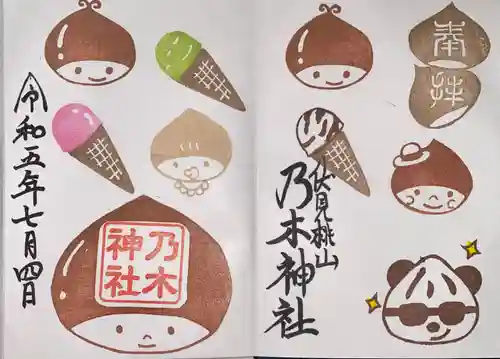 奉拝
伏見桃山
乃木神社
乃木
神社
令和五年七月四日